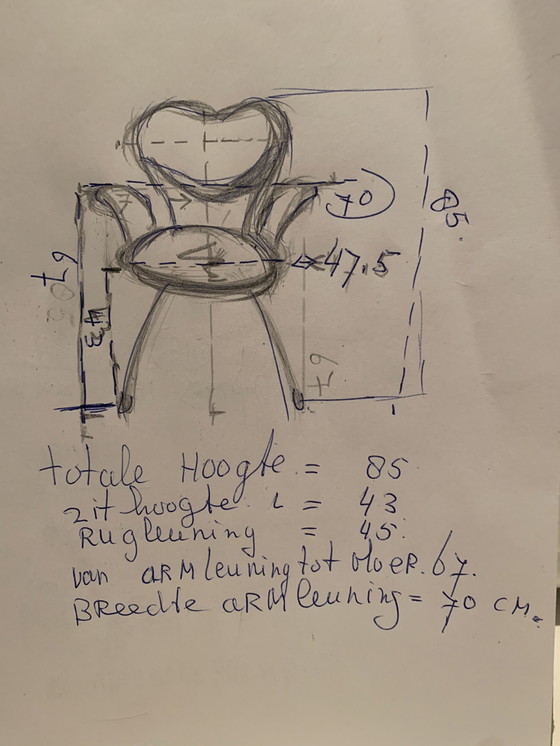 70
85.
47.5
67
43
67
totale Hoogte = 85
zithoogte = 43
Rugleuning = 45.
van ARMleuning tot vloeR. 67.
BReedte aRMleuning = 70 cM.